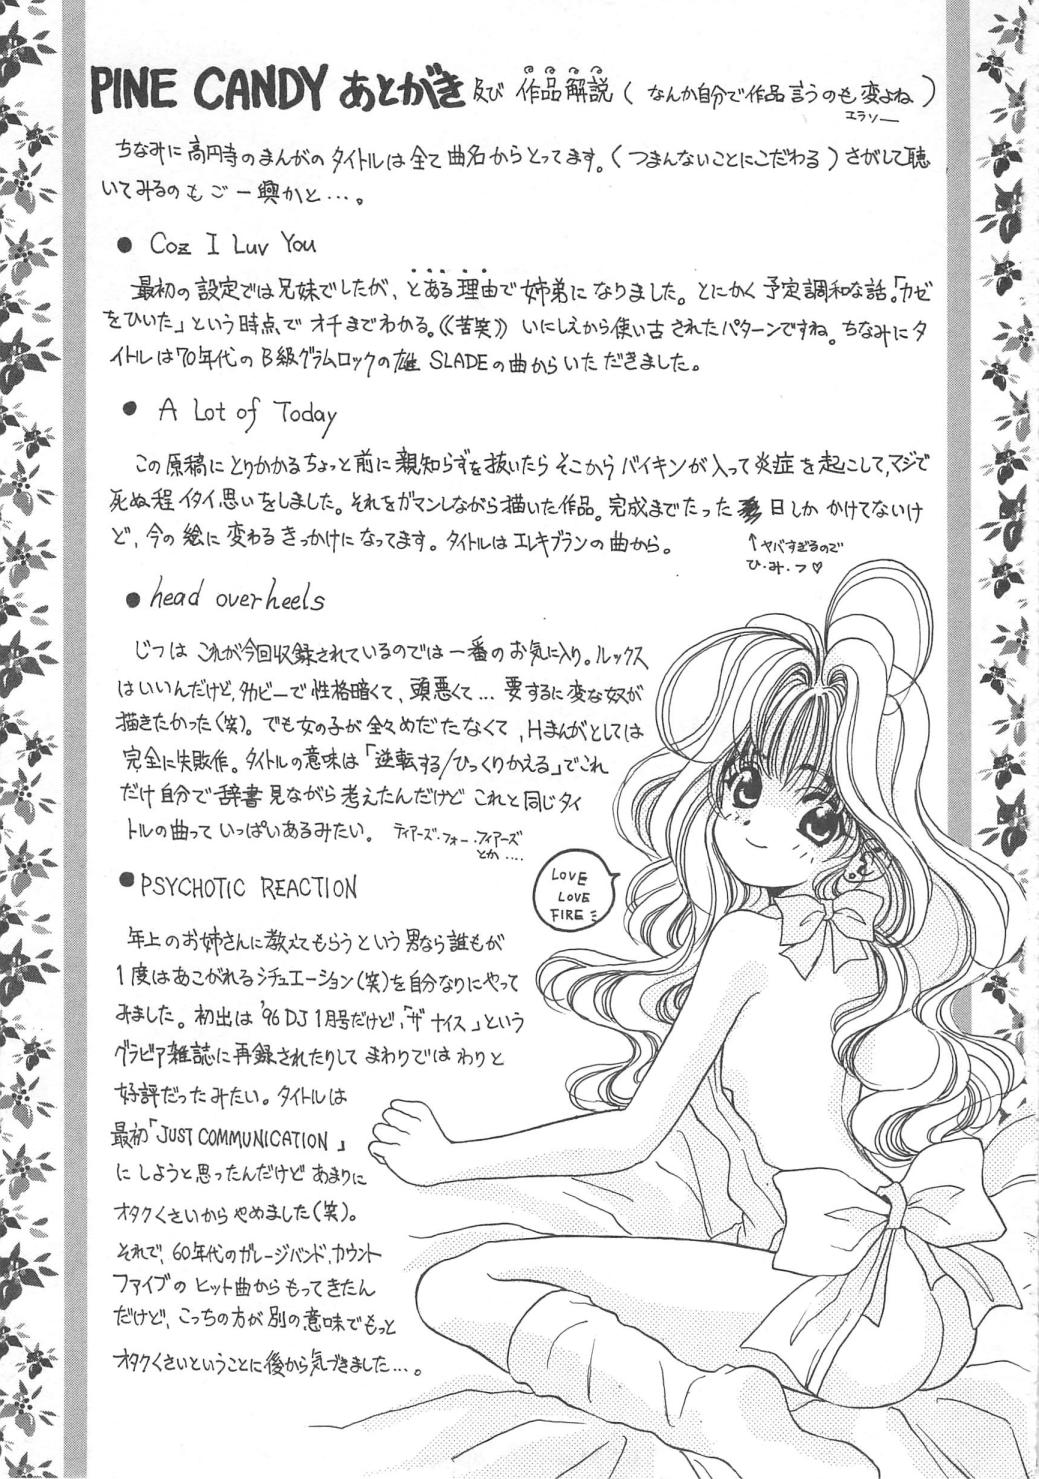 PINE CANDY あとがき 及び 作品解説（なんか自分で作品言うのも変よね）
エラソー
ちなみに高円寺のまんがのタイトルは全て曲名からとってます。（つまんないことにこだわる）さがして聴
いてみるのもご一興かと…。
● Coz I Luv You
最初の設定では兄妹でしたが、とある理由で姉弟になりました。とにかく予定調和な話。「カゼ
をひいた」という時点でオチまでわかる。《苦笑》いにしえから使い古されたパターンですね。ちなみにタ
イトルは70年代のB級グラムロックの雄 SLADEの曲からいただきました。
● A Lot of Today
この原稿にとりかかるちょっと前に親知らずを抜いたらそこからバイキンが入って炎症を起こして、マジで
死ぬ程イタイ思いをしました。それをガマンしながら描いた作品。完成までたった 日しかかけてないけ
ど、今の絵に変わるきっかけになってます。タイトルはエレキブランの曲から。
↑ヤバすぎるので
ひ・み・つ♡
● head over heels
じつはこれが今回収録されているのでは一番のお気に入り。ルックス
はいいんだけど、タカビーで性格暗くて、頭悪くて…要するに変な奴が
描きたかった（笑）。でも女の子が全々めだたなくて、Hまんがとしては
完全に失敗作。タイトルの意味は「逆転する/ひっくりかえる」でこれ
だけ自分で辞書見ながら考えたんだけどこれと同じタイ
トルの曲っていっぱいあるみたい。 ティアーズ・フォー・フィアーズ
とか….
● PSYCHOTIC REACTION
年上のお姉さんに教えてもらうという男なら誰もが
1度はあこがれるシチュエーション（笑）を自分なりにやって
みました。初出は'96 DJ 1月号だけど、「ザ ナイス」という
グラビア雑誌に再録されたりしてまわりではわりと
好評だったみたい。タイトルは
最初「JUST COMMUNICATION」
にしようと思ったんだけどあまりに
オタクくさいからやめました（笑）。
それで、60年代のガレージバンド、カウント
ファイブのヒット曲からもってきたん
だけど、こっちの方が別の意味でもっと
オタクくさいということに後から気づきました…。
LOVE
LOVE
FIRE